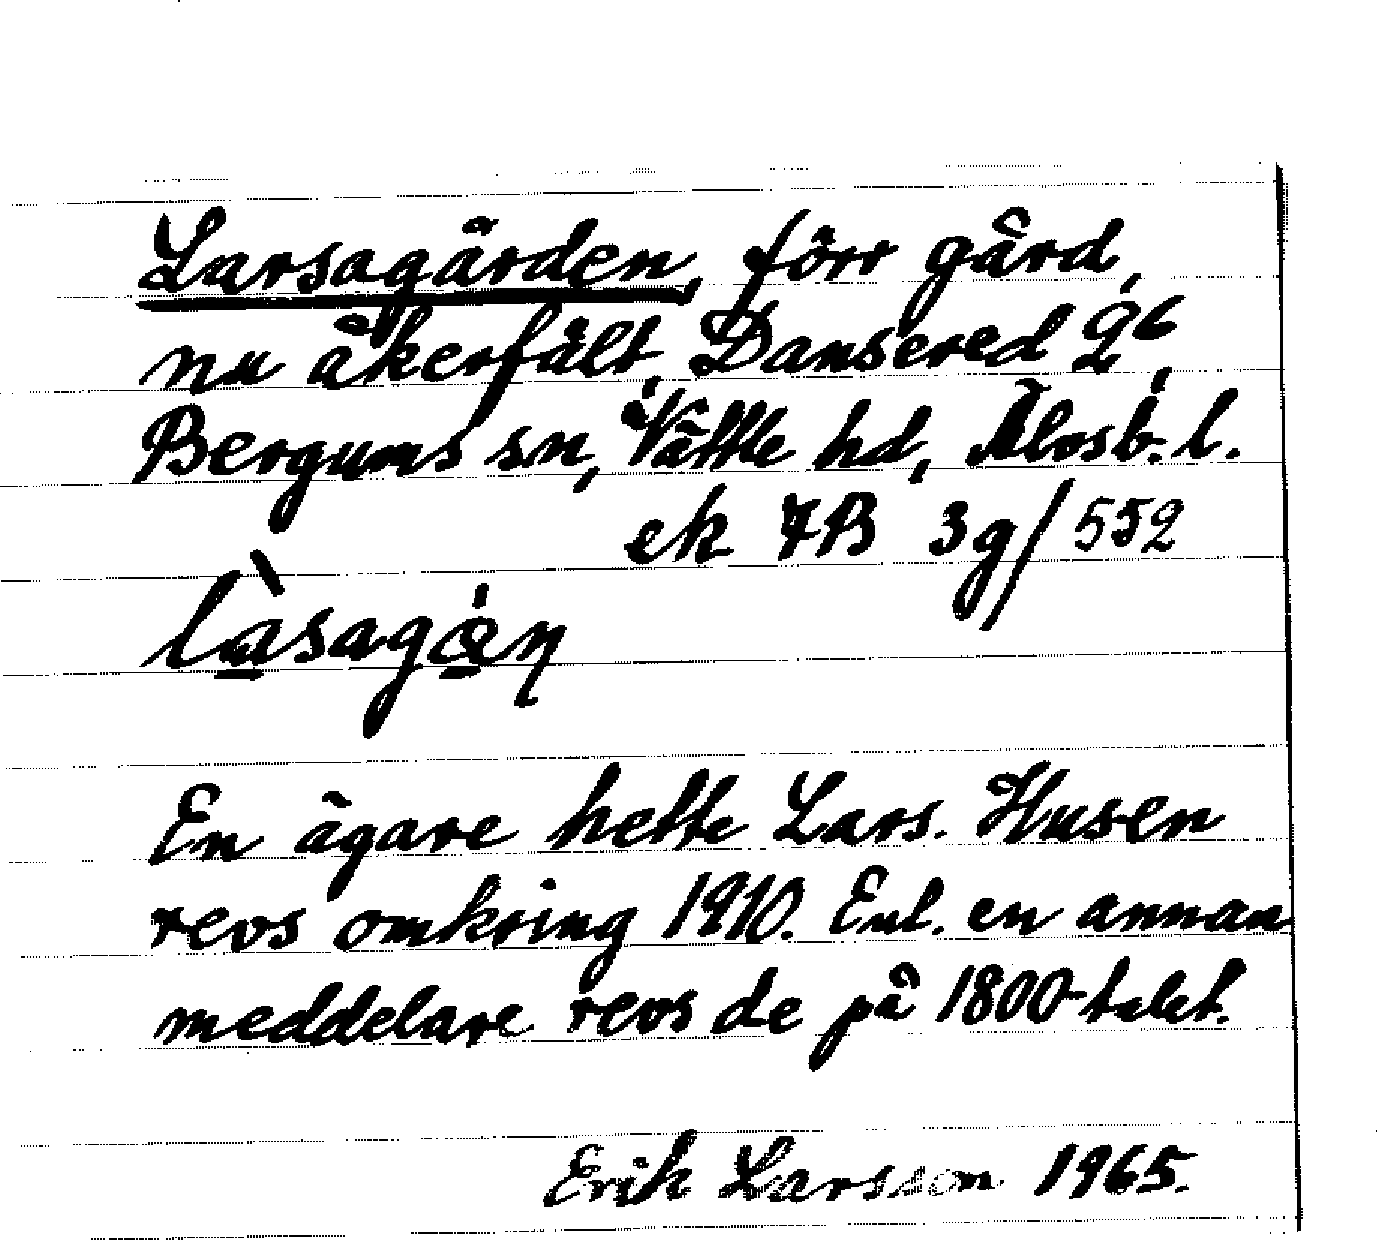 Larsagården, förr gård,
nu åkerfält, Dansered 2⁶,
Bergums sn, Vättle hd, Älvsb. l.
ek 7B 3g/552
làsagǻŋ
En ägare hette Lars. Husen
revs omkring 1910. Enl. en annan
meddelare revs de på 1800-talet.
Erik Larsson 1965.